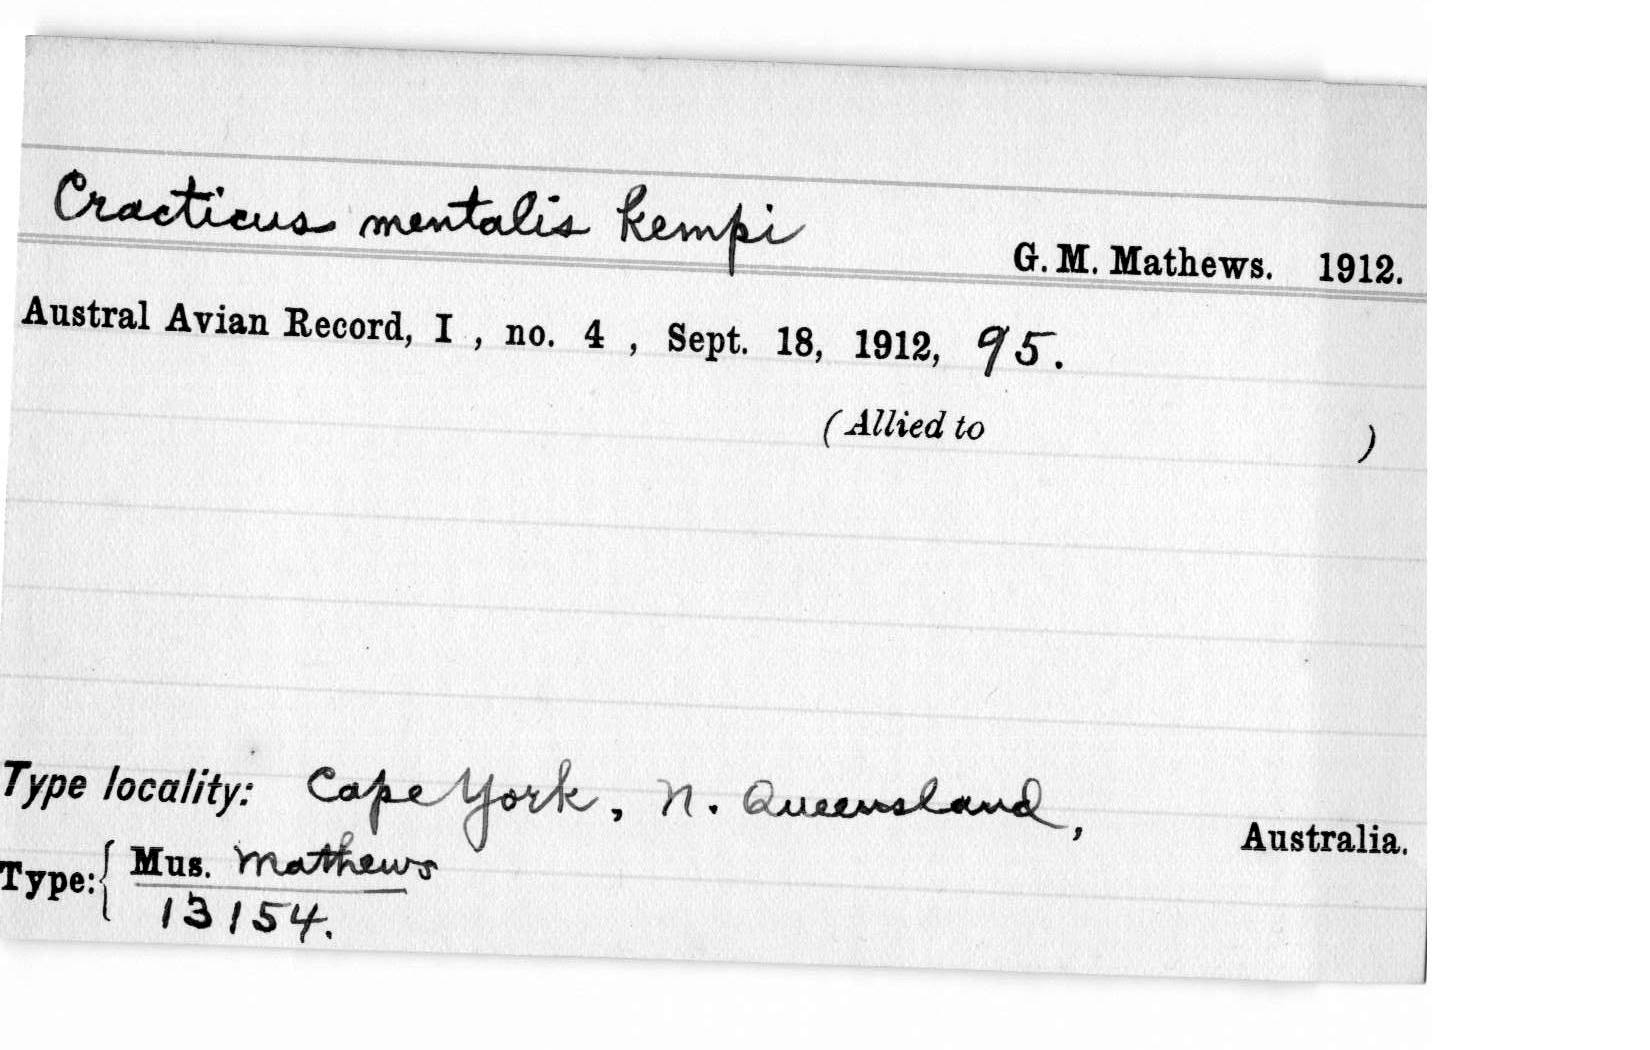 Cracticus mentalis kempi
G. M. Mathews. 1912.
Austral Avian Record, I , no. 4 , Sept. 18, 1912, 95.
(Allied to )
Type locality: Cape York, N. Queensland, Australia.
Type: { Mus. Mathews
13154.